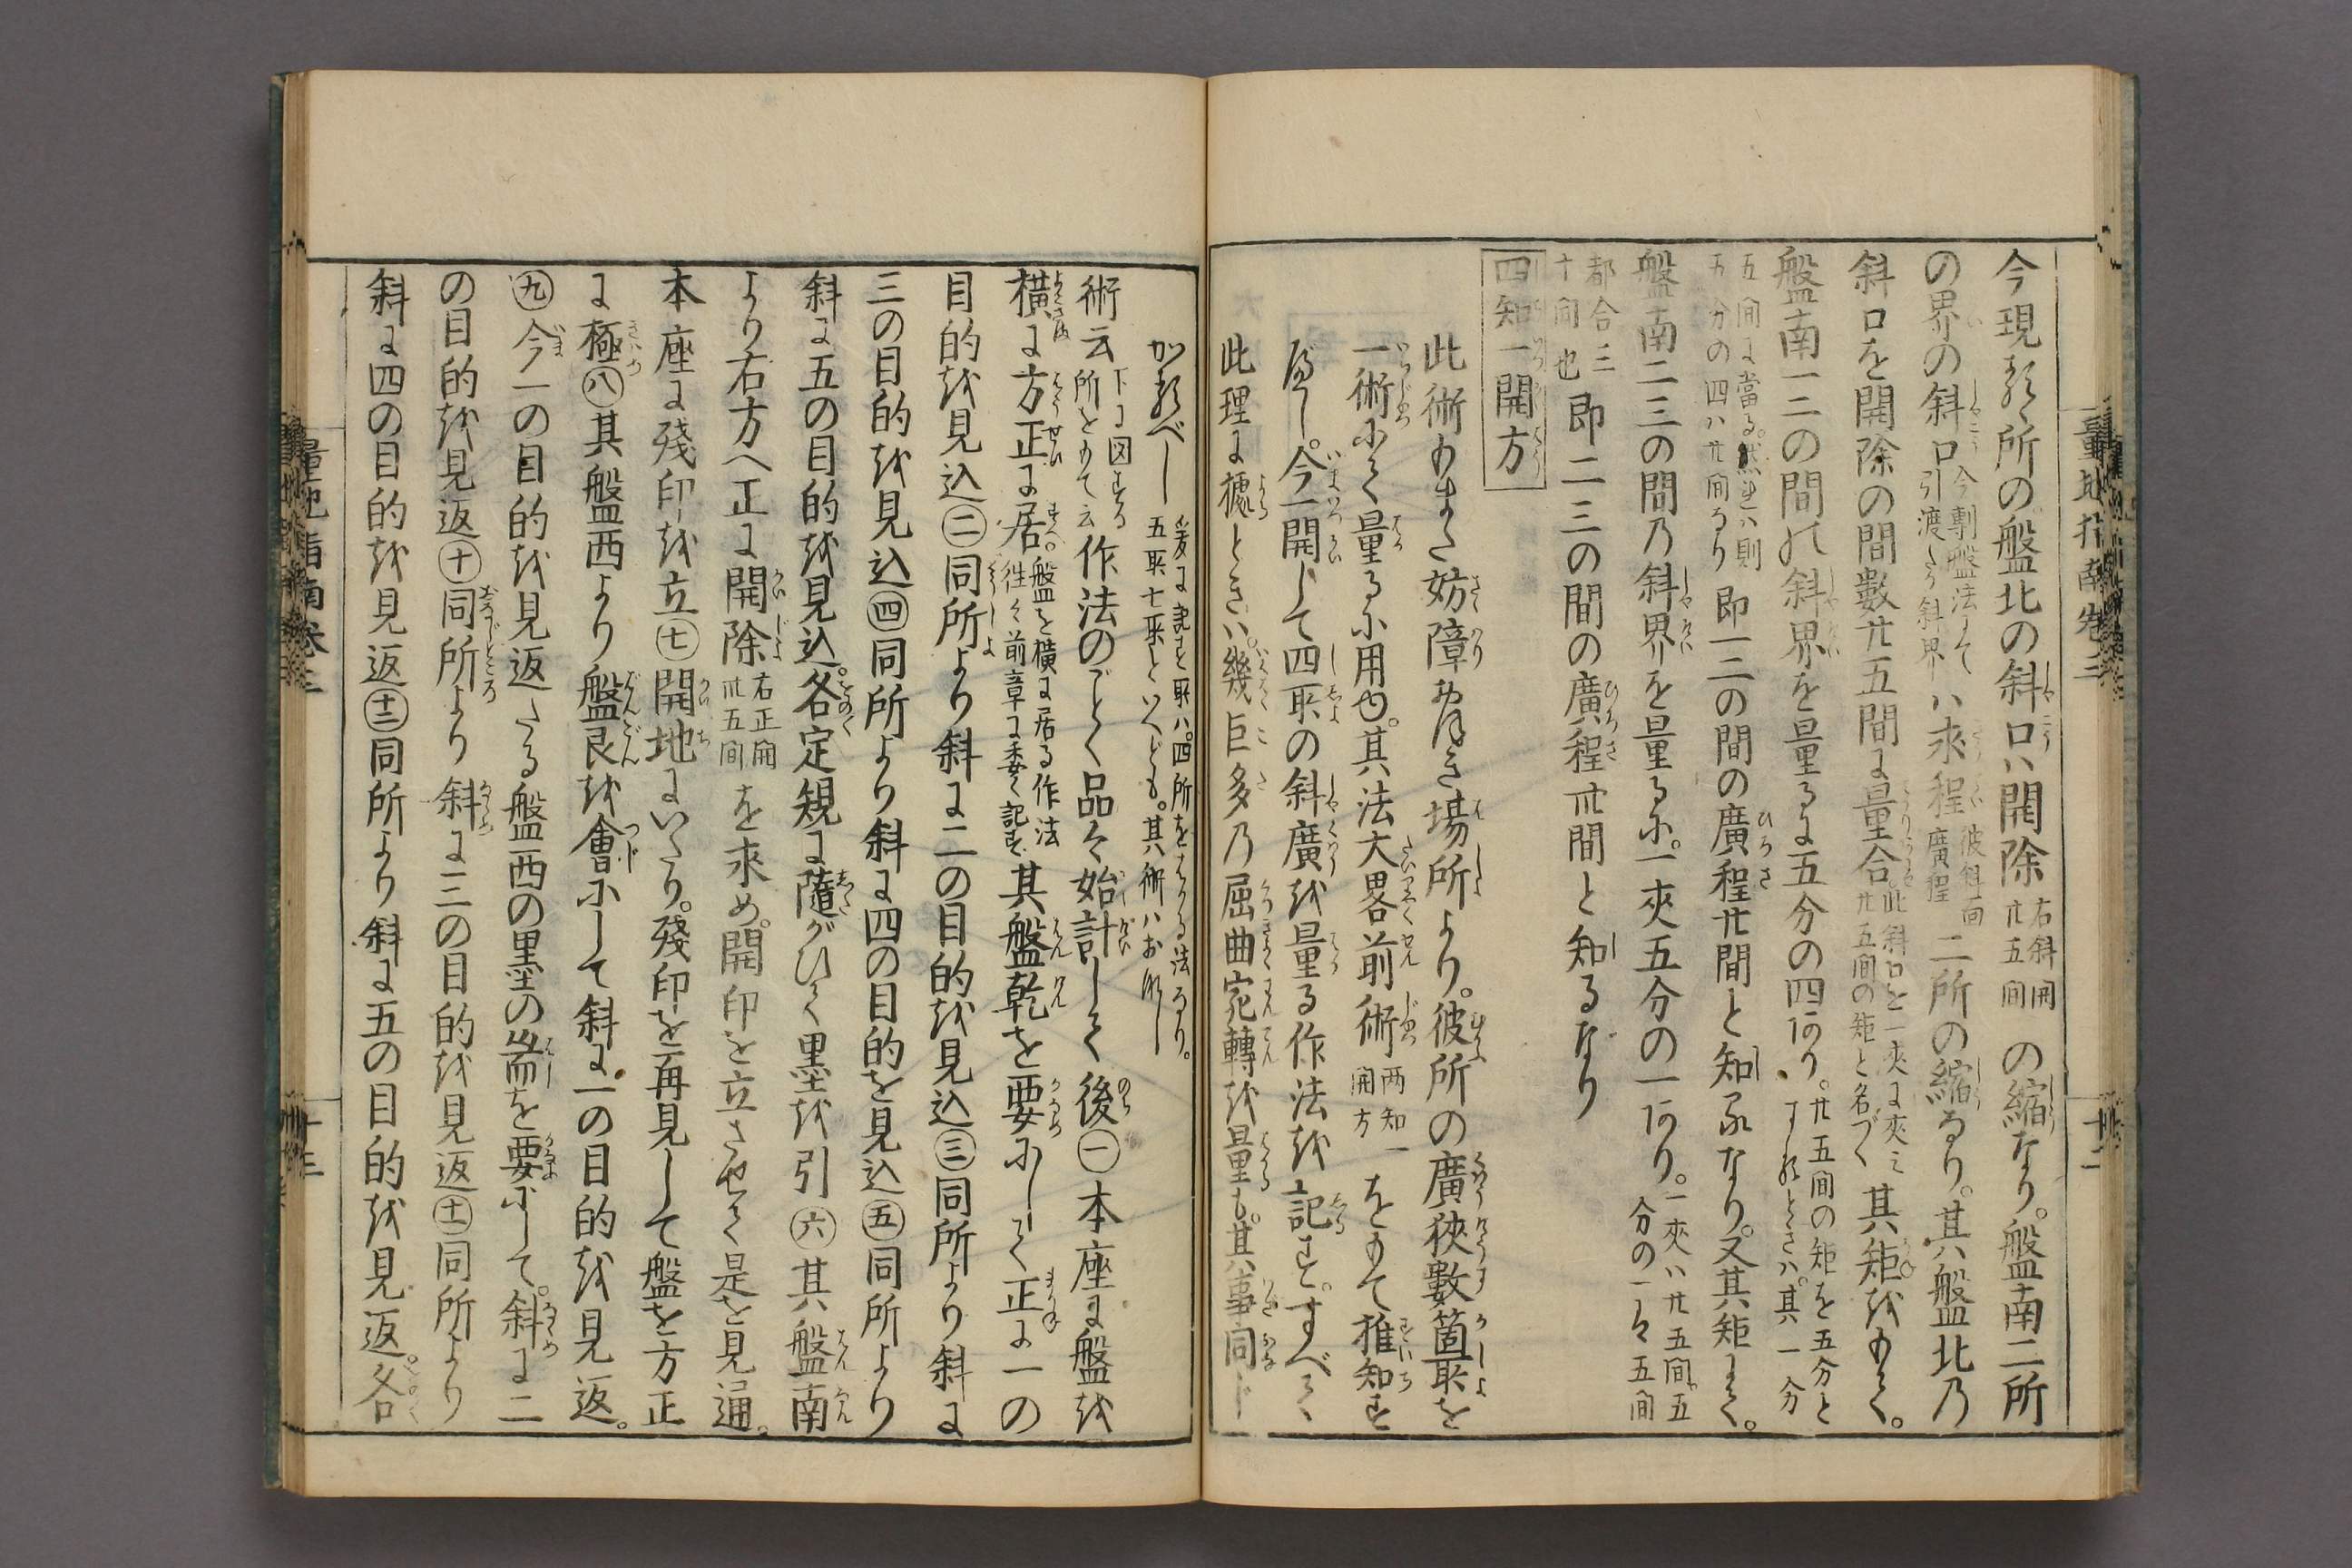 今現るゝ所の盤北の斜口ハ開除右斜開廿五間の縮なり。盤南二所
の界の斜口今割盤法にて引渡たる斜界ハ求程彼斜面廣程二所の縮なり。其盤北乃
斜口を開除の間數廿五間に量合此斜口を一夾に夾之廿五間の矩と名づく其矩をもて。
盤南一二の間の斜界を量るに五分の四あり。廿五間の矩を五分とするときハ。其一分
五間に當る。然れハ則五分の四ハ廿間なり即一二の間の廣程廿間と知るなり。又其矩にて。
盤南二三の間乃斜界を量るに。一夾五分の一あり。一夾ハ廿五間。五分の一ハ五間
都合三十間也即二三の間の廣程卅間と知るなり
四知一開方
此術もまた妨障おほき場所より。彼所の廣狭數箇所を
一術にて量るに用也。其法大畧前術両知一開方をもて推知す
べし。今一開して四所の斜廣を量る作法を記す。すべて
此理に據ときハ。幾巨多乃屈曲宛轉を量も。其事同じ
量地指南巻三
十二
かるべし爰に記す所ハ。四所をはかる法なり。五所七所といへども。其術ハおなじ
術云下に図する所をもて云作法のごとく品々始計して後㊀本座に盤を
横に方正に居。盤を横に居る作法往々前章に委く記す其盤乾を要にして正に一の
目的を見込㊁同所より斜に二の目的を見込㊂同所より斜に
三の目的を見込㊃同所より斜に四の目的を見込㊄同所より
斜に五の目的を見込。各定規に隨がひて墨を引㊅其盤南
より右方へ正に開除右正開卅五間を求め。開印を立させて是を見通。
本座に殘印を立㊆開地にいたり。殘印を再見して盤を方正
に極㊇其盤西より盤艮を會にして斜に一の目的を見返。
㊈今一の目的を見返たる盤西の墨の端を要にして。斜に二
の目的を見返㊉同所より斜に三の目的を見返⑪同所より
斜に四の目的を見返⑫同所より斜に五の目的を見返。各
量地指南巻三
十三